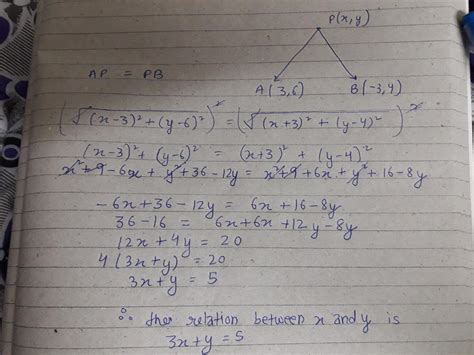 P(x,y)
AP = PB
A(3,6) B(-3,4)
(√(x-3)²+(y-6)²)² = (√(x+3)²+(y-4)²)²
(x-3)²+(y-6)² = (x+3)²+(y-4)²
x²+9-6x+y²+36-12y = x²+9+6x+y²+16-8y
-6x+36-12y = 6x+16-8y
36-16 = 6x+6x+12y-8y
12x+4y = 20
4(3x+y) = 20
3x+y = 5
∴ the relation between x and y is
3x+y=5